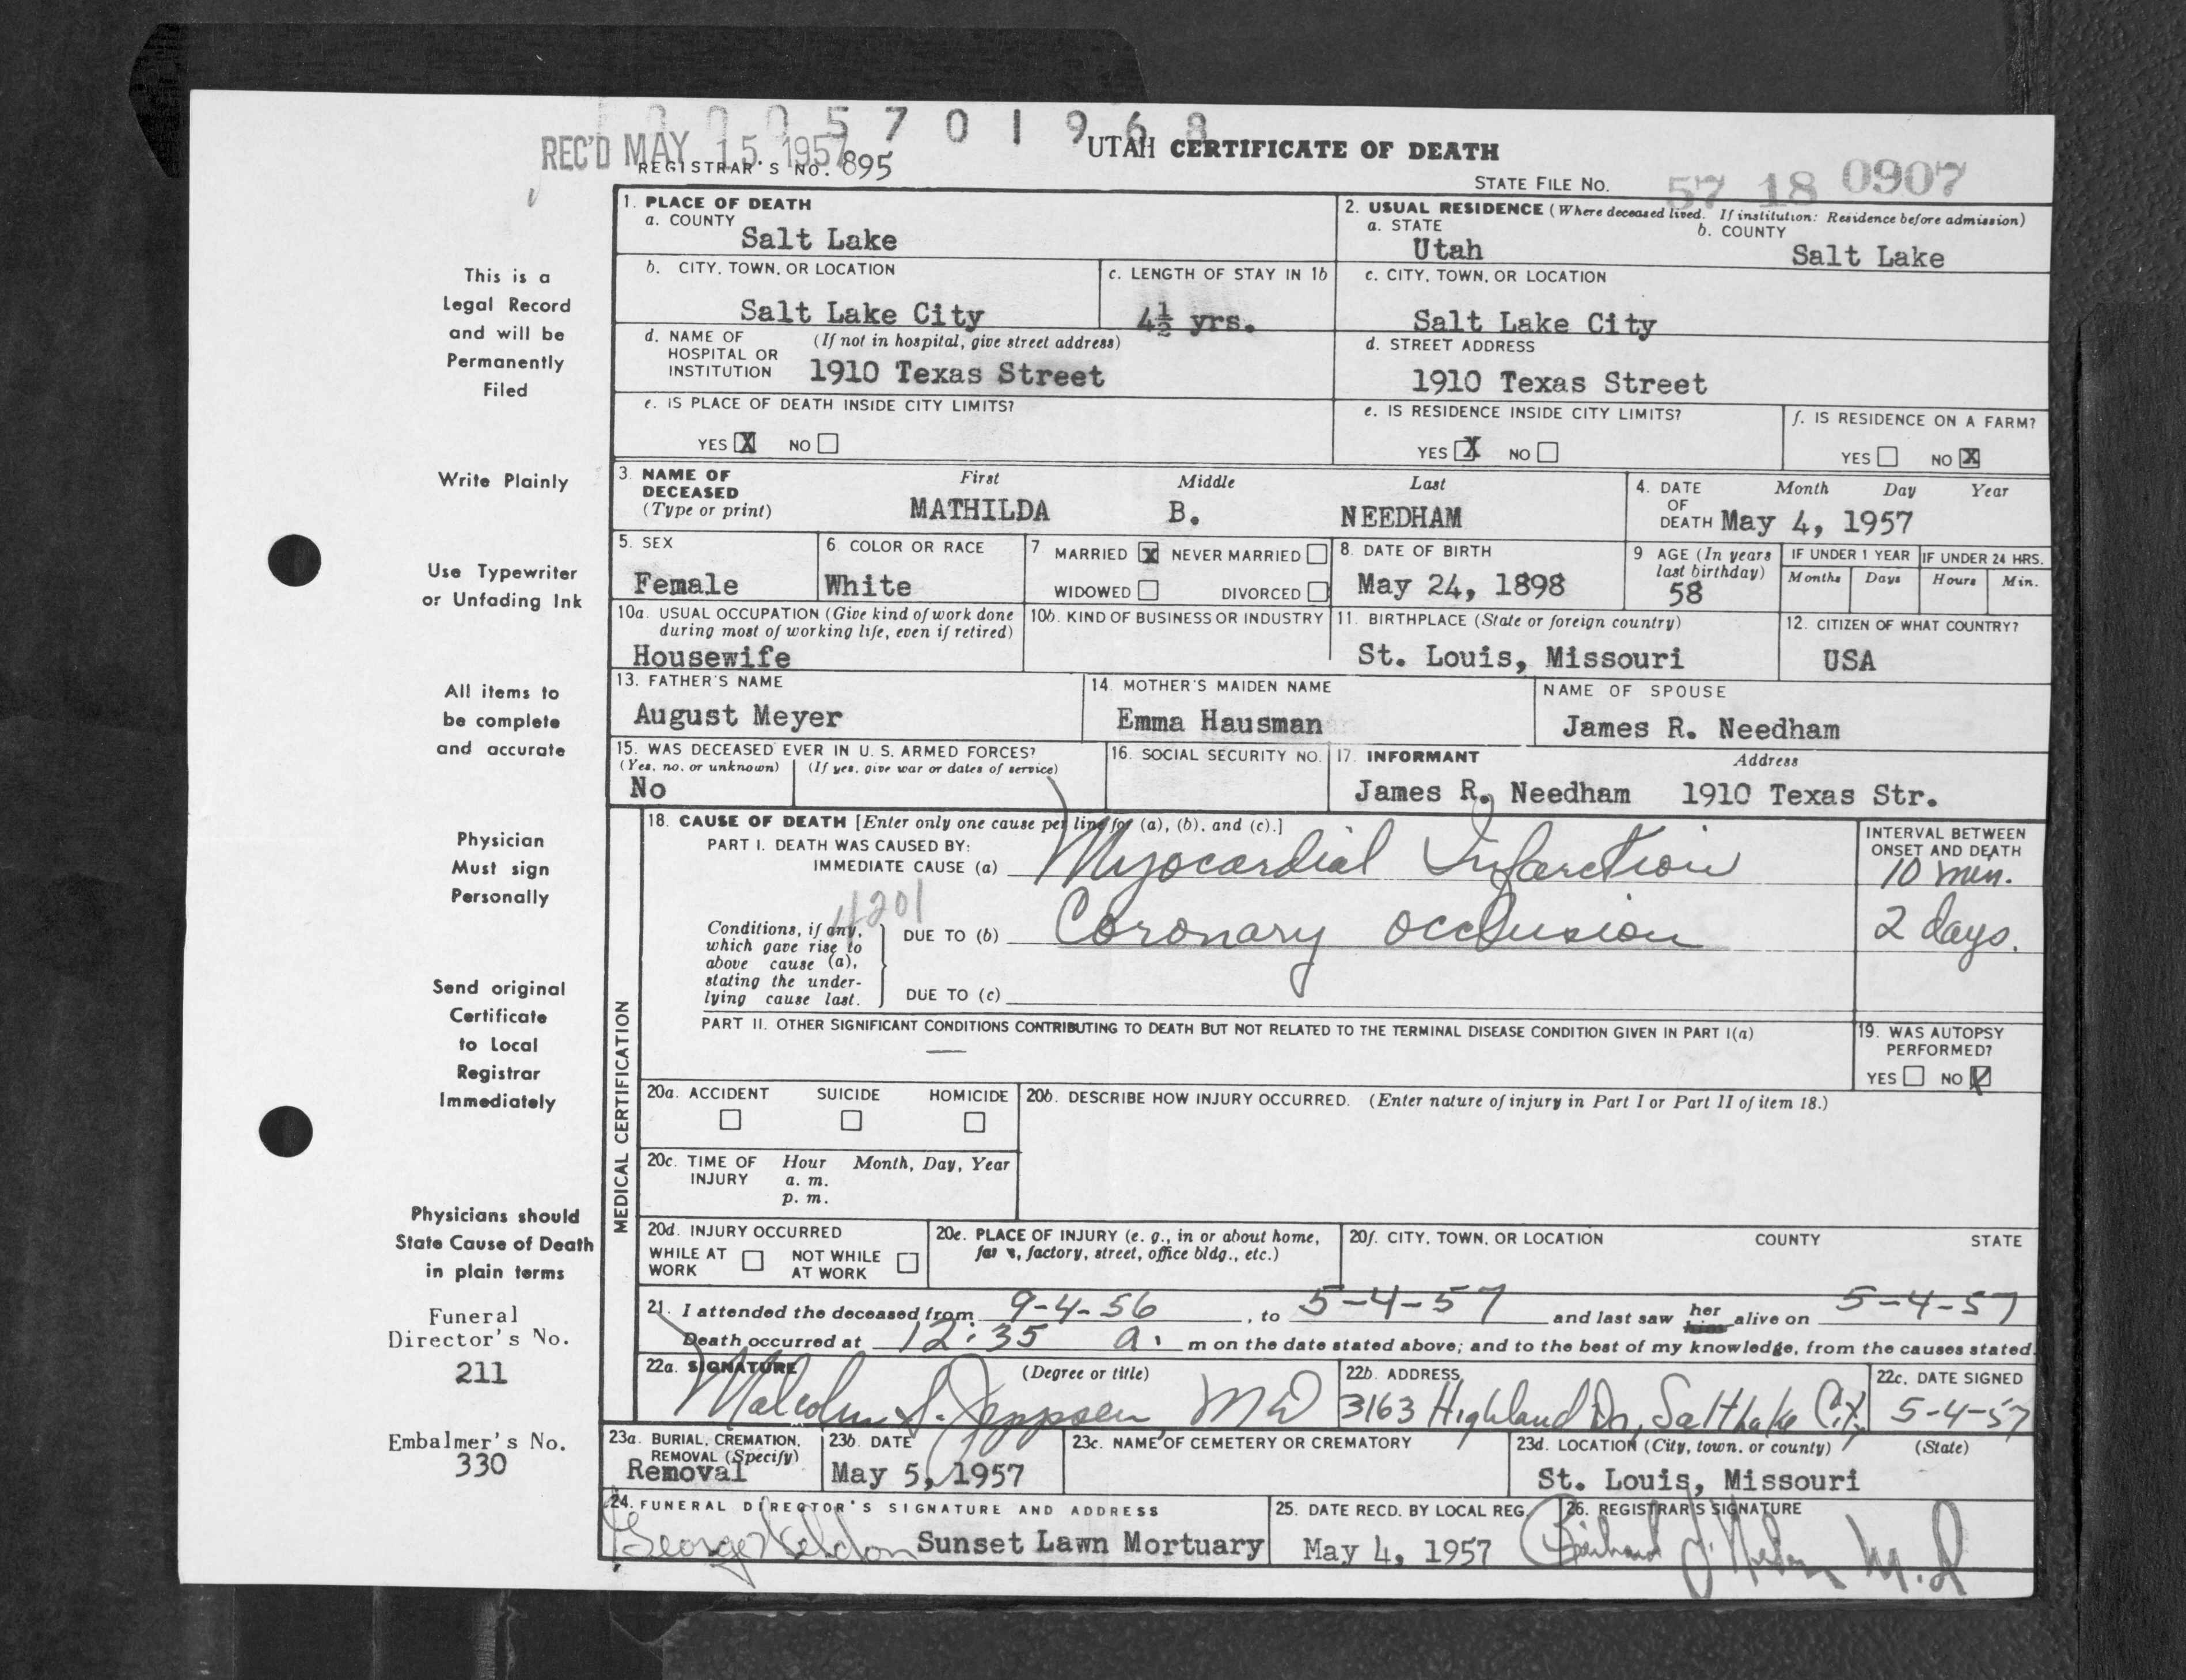 0 0 0 5 7 0 1 9 6 8
REC'D MAY 15 1957
UTAH CERTIFICATE OF DEATH
REGISTRAR'S NO. 895
STATE FILE NO. 57 18 0907
1. PLACE OF DEATH
a. COUNTY
Salt Lake
2. USUAL RESIDENCE (Where deceased lived. If institution: Residence before admission)
a. STATE b. COUNTY
Utah Salt Lake
b. CITY, TOWN, OR LOCATION
Salt Lake City
c. LENGTH OF STAY IN 1b
4½ yrs.
c. CITY, TOWN, OR LOCATION
Salt Lake City
d. NAME OF HOSPITAL OR INSTITUTION (If not in hospital, give street address)
1910 Texas Street
d. STREET ADDRESS
1910 Texas Street
e. IS PLACE OF DEATH INSIDE CITY LIMITS?
YES X NO
e. IS RESIDENCE INSIDE CITY LIMITS?
YES X NO
f. IS RESIDENCE ON A FARM?
YES NO X
3. NAME OF DECEASED (Type or print)
First Middle Last
MATHILDA B. NEEDHAM
4. DATE OF DEATH Month Day Year
May 4, 1957
5. SEX
Female
6. COLOR OR RACE
White
7 MARRIED X NEVER MARRIED
WIDOWED DIVORCED
8. DATE OF BIRTH
May 24, 1898
9 AGE (In years last birthday)
58
IF UNDER 1 YEAR
Months Days
IF UNDER 24 HRS.
Hours Min.
10a. USUAL OCCUPATION (Give kind of work done during most of working life, even if retired)
Housewife
10b. KIND OF BUSINESS OR INDUSTRY
11. BIRTHPLACE (State or foreign country)
St. Louis, Missouri
12. CITIZEN OF WHAT COUNTRY?
USA
13. FATHER'S NAME
August Meyer
14. MOTHER'S MAIDEN NAME
Emma Hausman
NAME OF SPOUSE
James R. Needham
15. WAS DECEASED EVER IN U. S. ARMED FORCES?
(Yes, no, or unknown) (If yes, give war or dates of service)
No
16. SOCIAL SECURITY NO.
17. INFORMANT Address
James R. Needham 1910 Texas Str.
MEDICAL CERTIFICATION
18. CAUSE OF DEATH [Enter only one cause per line for (a), (b), and (c).]
PART I. DEATH WAS CAUSED BY:
IMMEDIATE CAUSE (a) Myocardial Infarction
INTERVAL BETWEEN ONSET AND DEATH
10 min.
4201
Conditions, if any, which gave rise to above cause (a), stating the underlying cause last.
DUE TO (b) Coronary occlusion
2 days.
DUE TO (c)
PART II. OTHER SIGNIFICANT CONDITIONS CONTRIBUTING TO DEATH BUT NOT RELATED TO THE TERMINAL DISEASE CONDITION GIVEN IN PART I(a)
—
19. WAS AUTOPSY PERFORMED?
YES NO X
20a. ACCIDENT SUICIDE HOMICIDE
20b. DESCRIBE HOW INJURY OCCURRED. (Enter nature of injury in Part I or Part II of item 18.)
20c. TIME OF INJURY Hour Month, Day, Year
a. m.
p. m.
20d. INJURY OCCURRED
WHILE AT WORK NOT WHILE AT WORK
20e. PLACE OF INJURY (e. g., in or about home, factory, street, office bldg., etc.)
20f. CITY, TOWN, OR LOCATION COUNTY STATE
21. I attended the deceased from 9-4-56, to 5-4-57 and last saw her alive on 5-4-57
Death occurred at 12:35 a. m on the date stated above; and to the best of my knowledge, from the causes stated.
22a. SIGNATURE (Degree or title)
Malcolm S. Jeppsen MD
22b. ADDRESS
3163 Highland Dr, Salt Lake City
22c. DATE SIGNED
5-4-57
23a. BURIAL, CREMATION, REMOVAL (Specify)
Removal
23b. DATE
May 5, 1957
23c. NAME OF CEMETERY OR CREMATORY
23d. LOCATION (City, town, or county) (State)
St. Louis, Missouri
24. FUNERAL DIRECTOR'S SIGNATURE AND ADDRESS
George Sunset Lawn Mortuary
25. DATE RECD. BY LOCAL REG.
May 4, 1957
26. REGISTRAR'S SIGNATURE
M.D
This is a
Legal Record
and will be
Permanently
Filed
Write Plainly
Use Typewriter
or Unfading Ink
All items to
be complete
and accurate
Physician
Must sign
Personally
Send original
Certificate
to Local
Registrar
Immediately
Physicians should
State Cause of Death
in plain terms
Funeral
Director's No.
211
Embalmer's No.
330